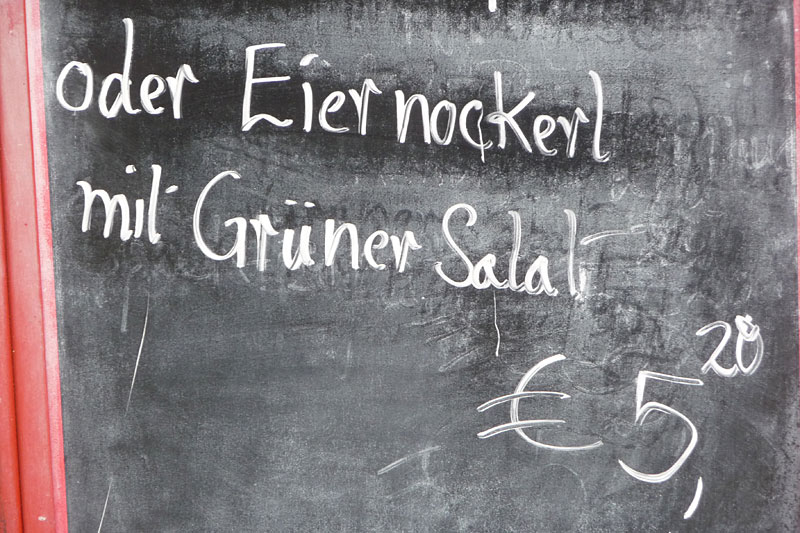 oder Eiernockerl
mit Grüner Salat
€ 5,20